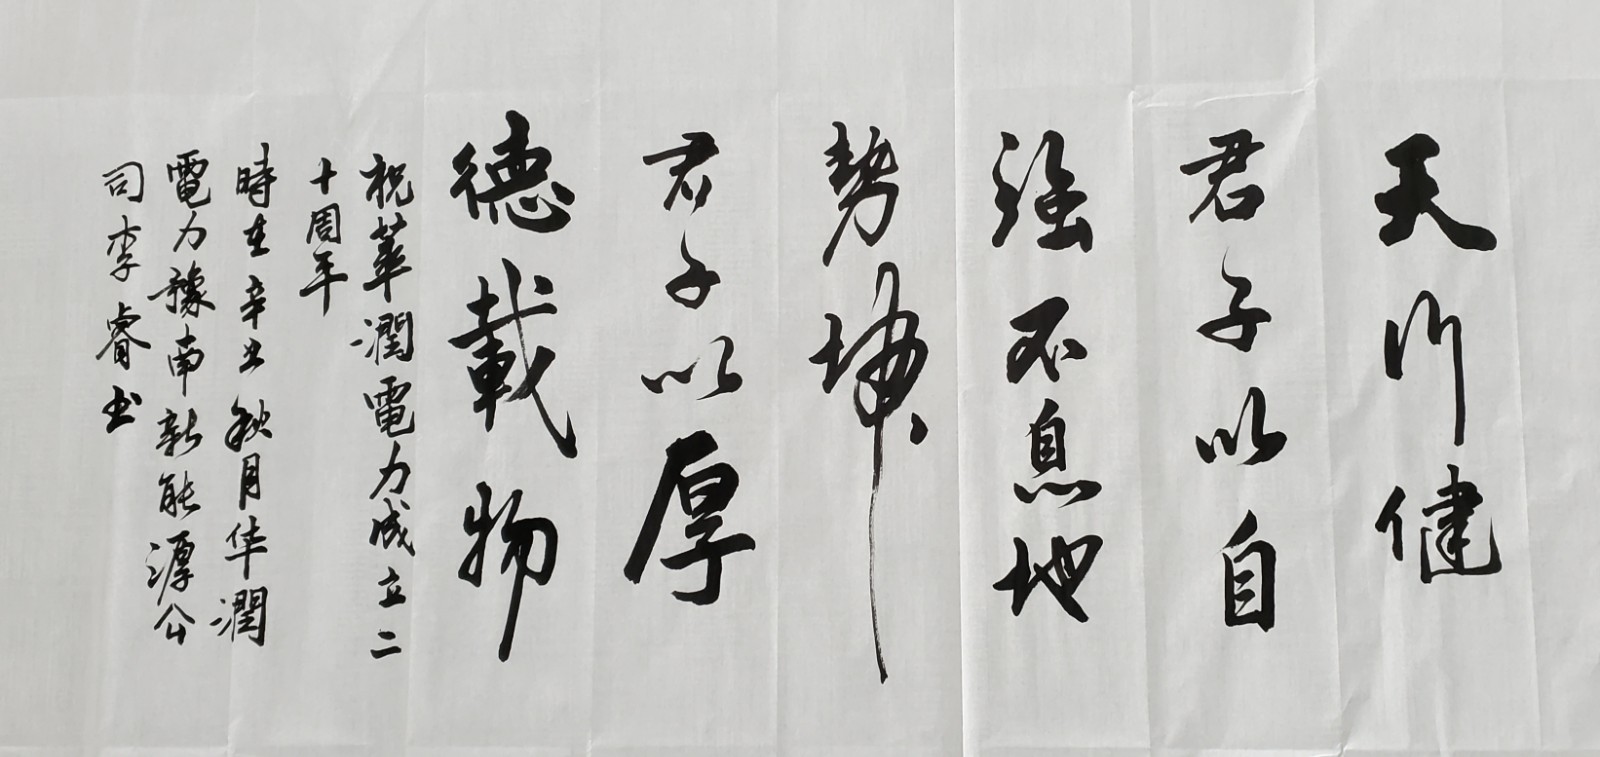 天行健
君子以自
强不息地
势坤
君子以厚
德載物
祝華潤電力成立二
十周年
時在辛丑秋月华潤
電力豫南新能源公
司李睿书